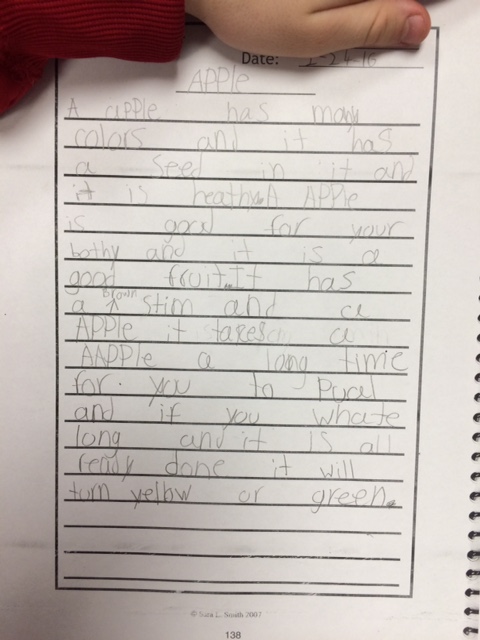 Date: 2-24-16
APPle
A apple has many
colors and it has
a seed in it and
it is heathy. A APPle
is good for your
bothy and it is a
good fruit. It has
a Brown stim and a
APPle it takes a
AAPPLE a long time
for you to Pycal
and if you whate
long and it is all
ready done it will
turn yellow or green.
© Sara L. Smith 2007
138